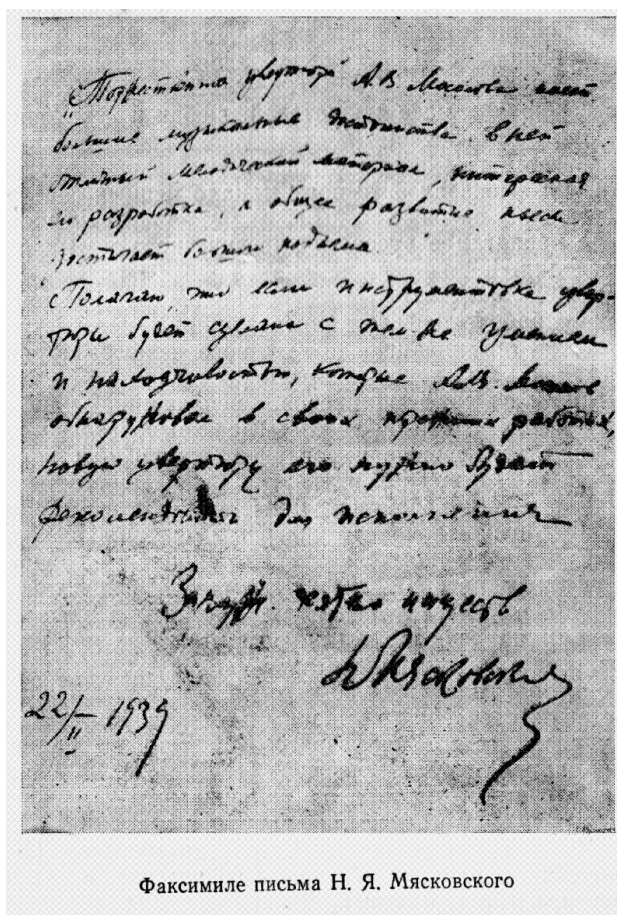 „Торжественная увертюра" А. В. Мосолова имеет
большие музыкальные достоинства. В ней
отличный мелодический материал, интересная
его разработка, а общее развитие пьесы
достигает больших подъема.
Полагаю, что если инструментовка увер-
тюры будет сделана с тем же умением
и находчивостью, которые А. В. Мосолов
обнаруживал в своих прежних работах,
новую увертюру его нужно будет
рекомендовать для исполнения
Заслуж. искусств
Н Мясковский
22/II 1939
Факсимиле письма Н. Я. Мясковского